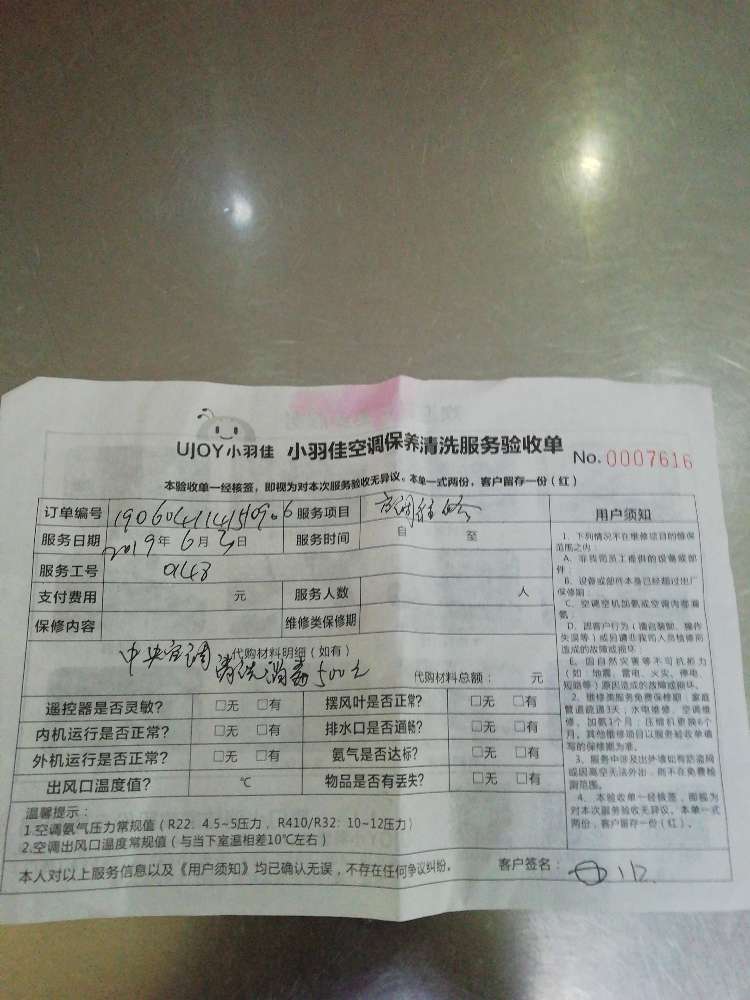 UJOY小羽佳 小羽佳空调保养清洗服务验收单 No. 0007616
本验收单一经核签，即视为对本次服务验收无异议。本单一式两份，客户留存一份（红）
订单编号 服务项目 空调维修
服务日期 2019年6月5日 服务时间 自 至
服务工号 0148
支付费用 元 服务人数 人
保修内容 维修类保修期
代购材料明细（如有）
中央空调清洗消毒500元
代购材料总额： 元
遥控器是否灵敏? □无 □有 摆风叶是否正常? □无 □有
内机运行是否正常? □无 □有 排水口是否通畅? □无 □有
外机运行是否正常? □无 □有 氨气是否达标? □无 □有
出风口温度值? ℃ 物品是否有丢失? □无 □有
温馨提示：
1.空调氨气压力常规值（R22：4.5~5压力，R410/R32：10~12压力）
2.空调出风口温度常规值（与当下室温相差10℃左右）
本人对以上服务信息以及《用户须知》均已确认无误，不存在任何争议纠纷。 客户签名：
用户须知
1、下列情况不在维修项目的维保
范围之内：
A、非我司员工提供的设备或部
件；
B、设备或部件本身已经超过出厂
保修期；
C、空调空机加氨或空调内漏
氨；
D、因客户行为（擅自装卸、操作
失误等）或另请非我司人员检修而
造成的故障或损坏；
E、因自然灾害等不可抗拒力
（如：地震、雷电、火灾、停电、
短路等）原因造成的故障或损坏。
2、维修类服务免费保修期：家庭
管道疏通3天，水电维修、空调维
修、加氨1个月；压缩机更换6个
月。其他维修项目以服务验收单填
写的保修期为准。
3、服务中涉及出外墙如有防盗网
或因高空无法外出，则不在免费检
测范围。
4、本验收单一经核签，即视为
对本次服务验收无异议。本单一式
两份，客户留存一份（红）。